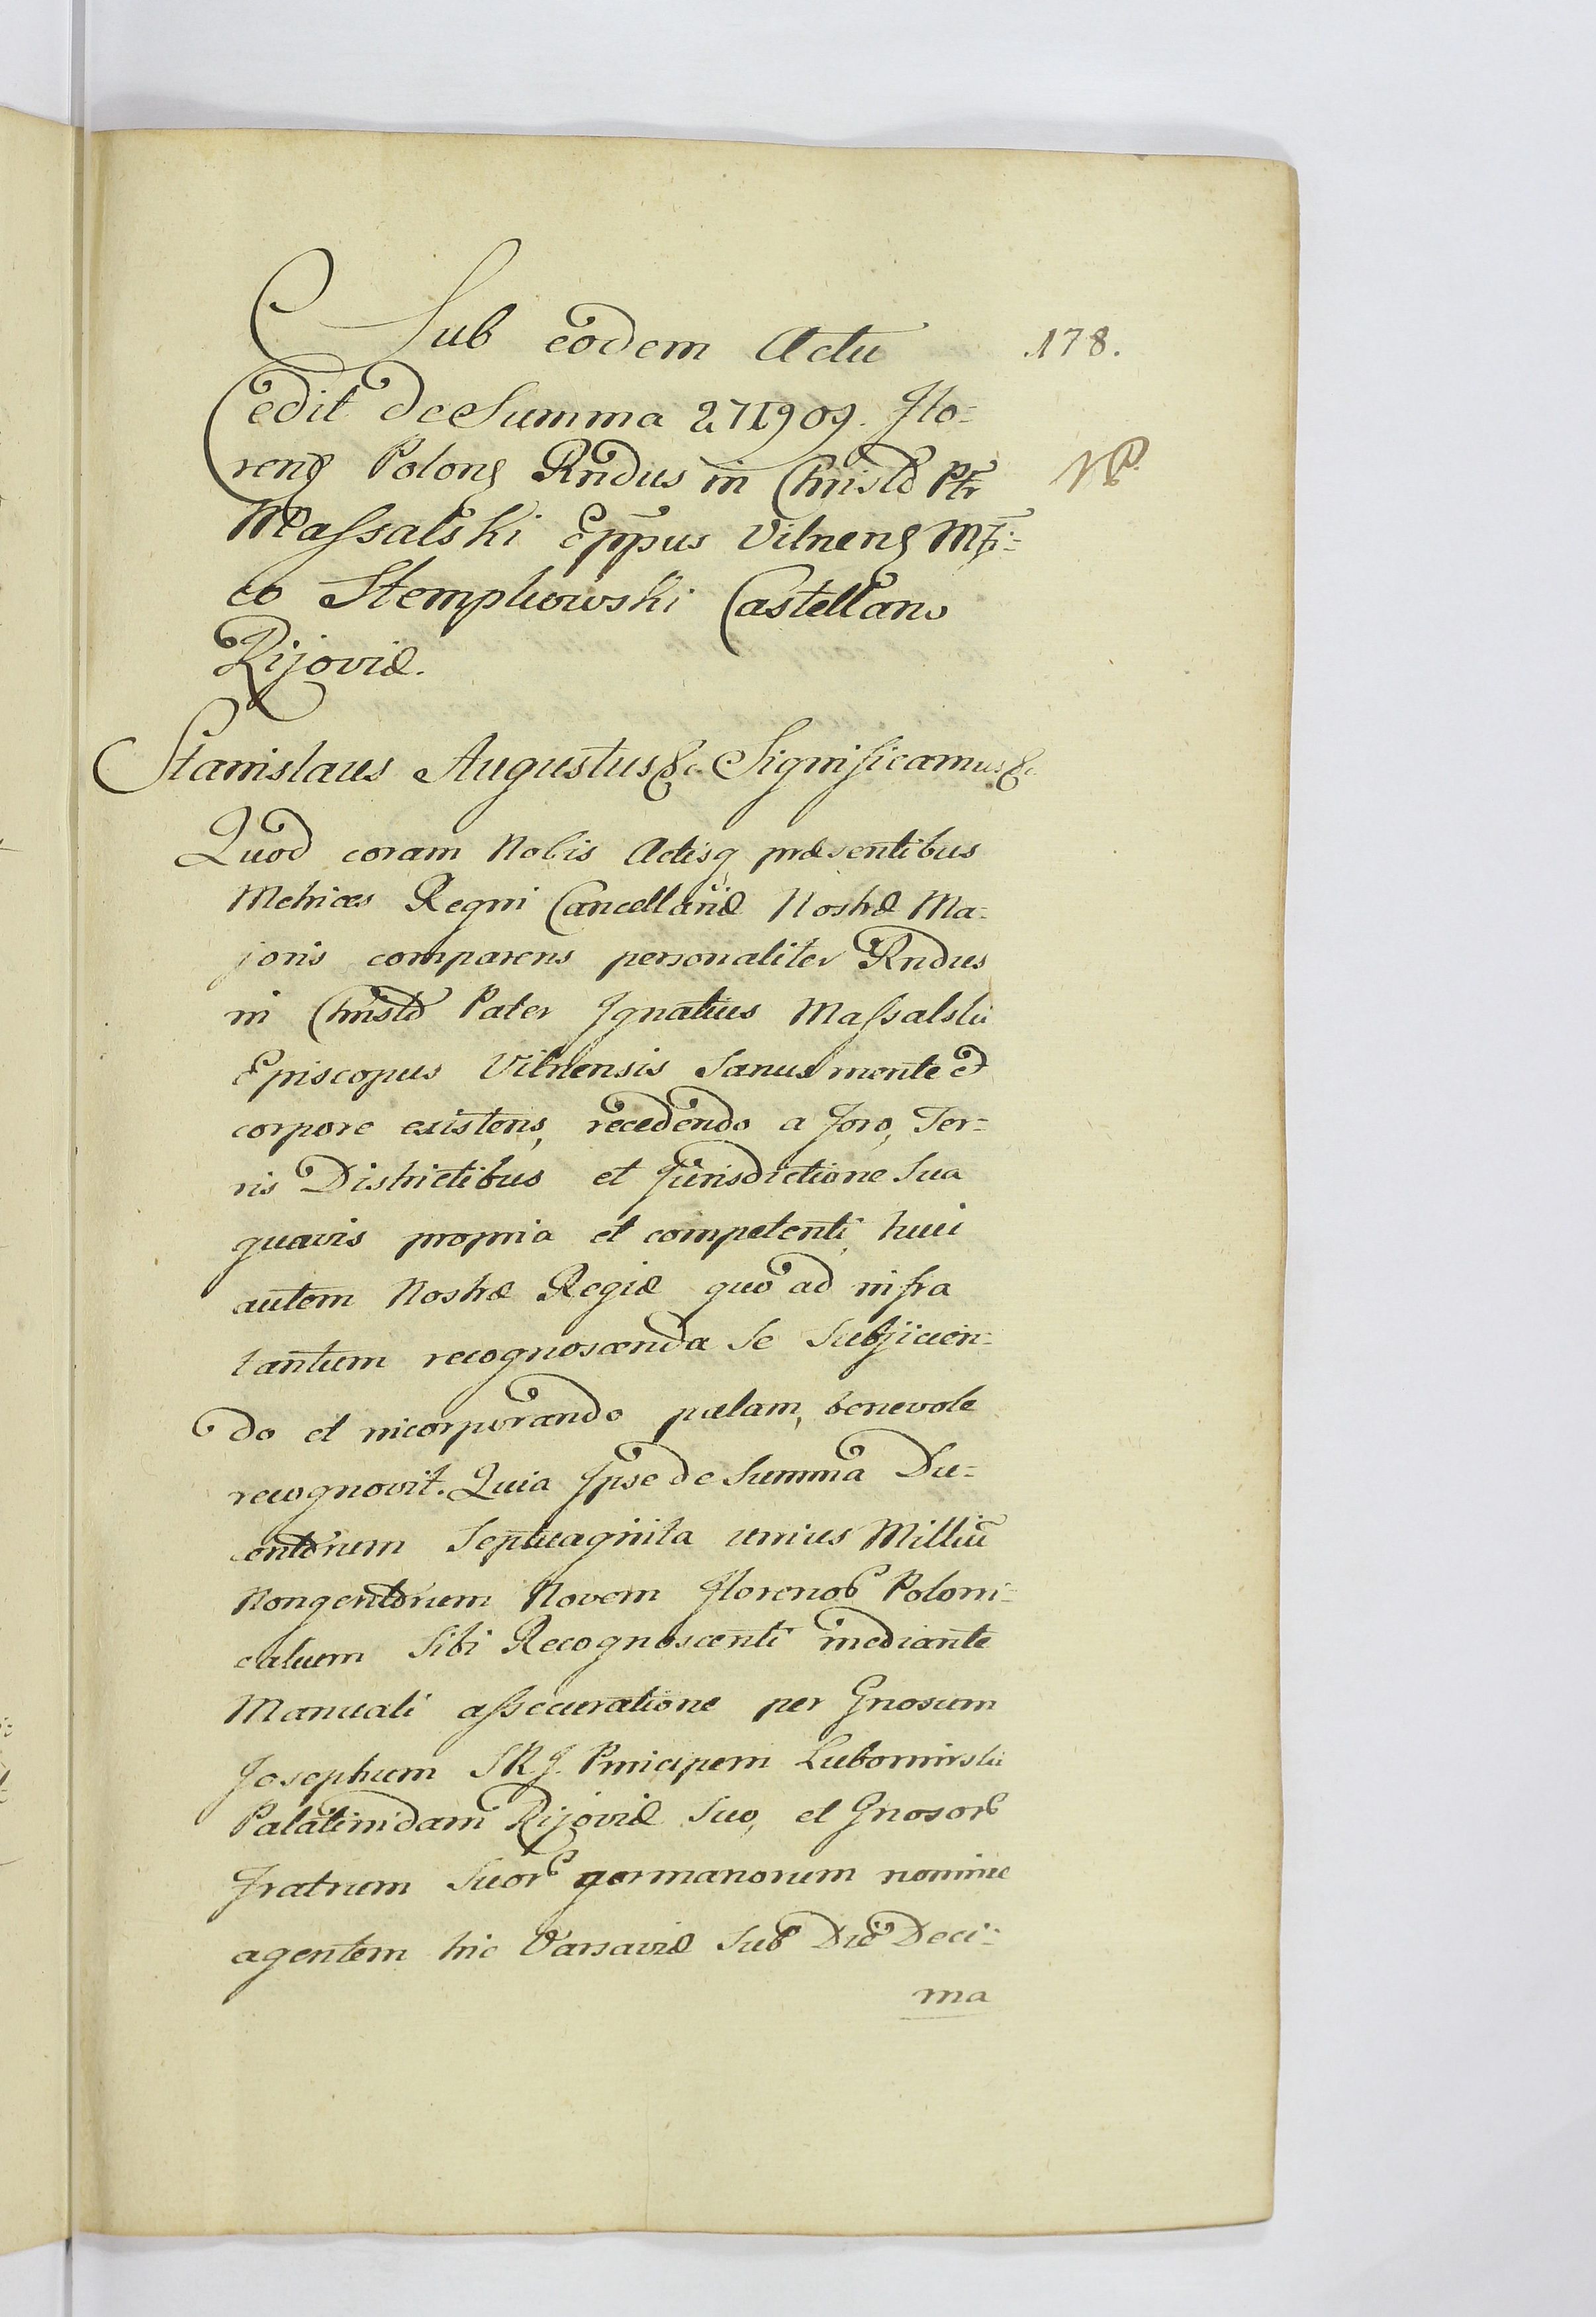 Sub eodem Actu
178.
Cedit de Summa 271909. Flo=
reng Polong Rndus in Christo Ptr
NB
Massalski Eppus Vilneng Mfi=
co Stempkowski Castellano
Kijoviæ.
Stanislaus Augustus &c. Significamus &c
Quod coram Nobis Actisq præsentibus
Metrices Regni Cancellariæ Nostræ Ma=
joris comparens personaliter Rndus
in Christo Pater Ignatius Massalski
Episcopus Vilnensis Sanus mente et
corpore existens, recedendo a foro, Ter=
ris Districtibus et Jurisdictione Sua
quavis propria et competenti, huic
autem Nostræ Regiæ quo ad infra
tantum recognoscenda Se Subjicien=
do et incorporando palam, benevole
recognovit. Quia Ipse de Summa Du=
centorum Septuaginta unius Milliū
Nongentorum Novem florenor Poloni=
calium Sibi Recognoscenti mediante
Manuali assecuratione per Gnosum
Josephum S R J. Principem Lubomirski
Palatinidam Kijoviæ Suo, et Gnosor
fratrum Suor germanorum nomine
agentem hic Varsaviæ Sub Die Deci=
ma